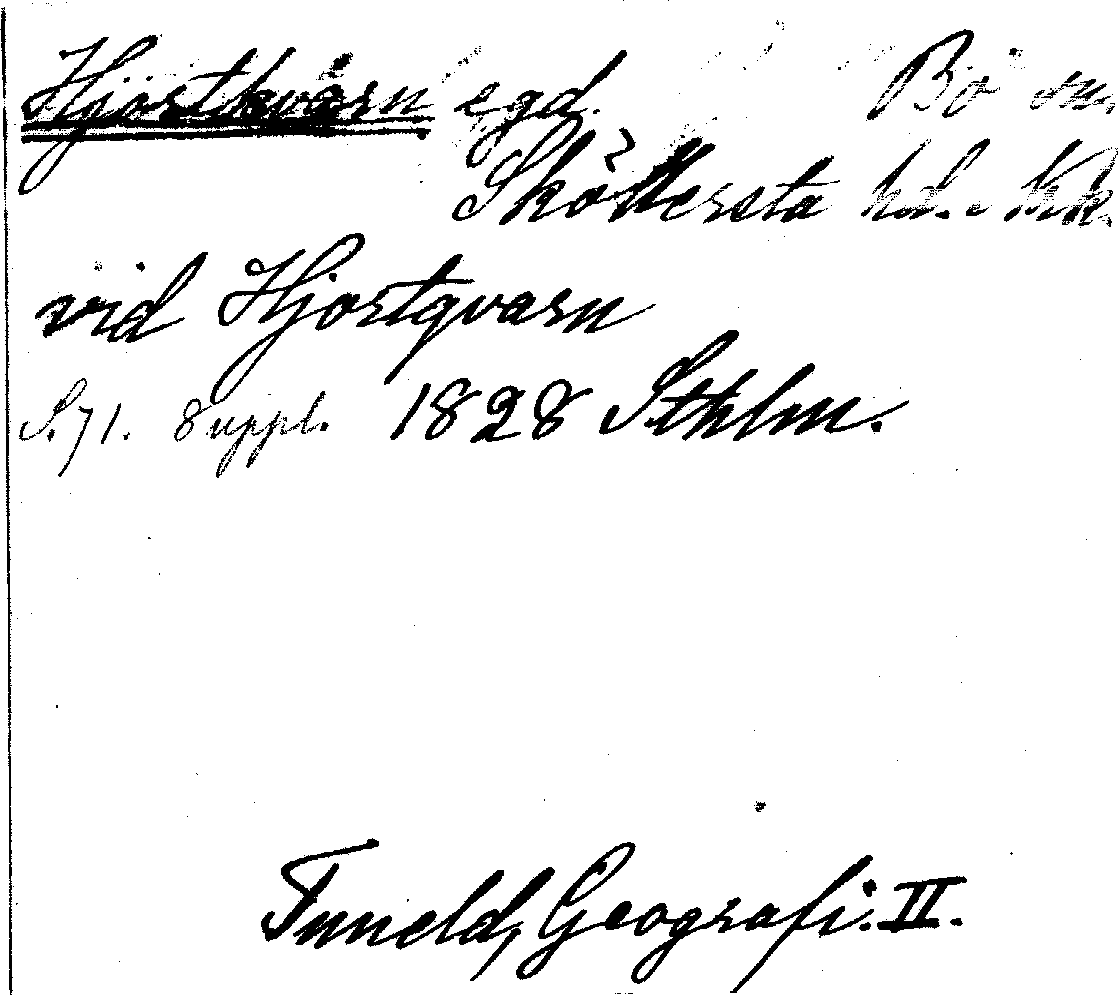 Hjortkvarn egd. Bo sn.
Sköllersta hd. Nrk.
vid Hjortqvarn
S. 71. 8 uppl. 1828 Sthlm.
Tuneld, Geografi. II.